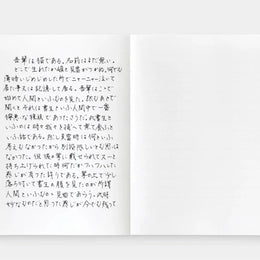 吾輩は猫である。名前はまだ無い。
どこで生れたか頓と見當がつかぬ。何でも
薄暗いじめじめした所でニャーニャー泣いて
居た事丈は記憶して居る。吾輩はこゝで
始めて人間といふものを見た。然もあとで
聞くとそれは書生といふ人間中で一番
獰悪な種族であつたさうだ。此書生と
いふのは時々我々を捕へて煮て食ふと
いふ話である。然し其當時は何といふ
考もなかつたから別段恐しいとも思は
なかつた。但彼の掌に載せられてスーと
持ち上げられた時何だかフハフハした
感じが有つた許りである。掌の上で少し
落ち付いて書生の顔を見たのが所謂
人間といふものゝ見始であらう。此時
妙なものだと思つた感じが今でも残つて